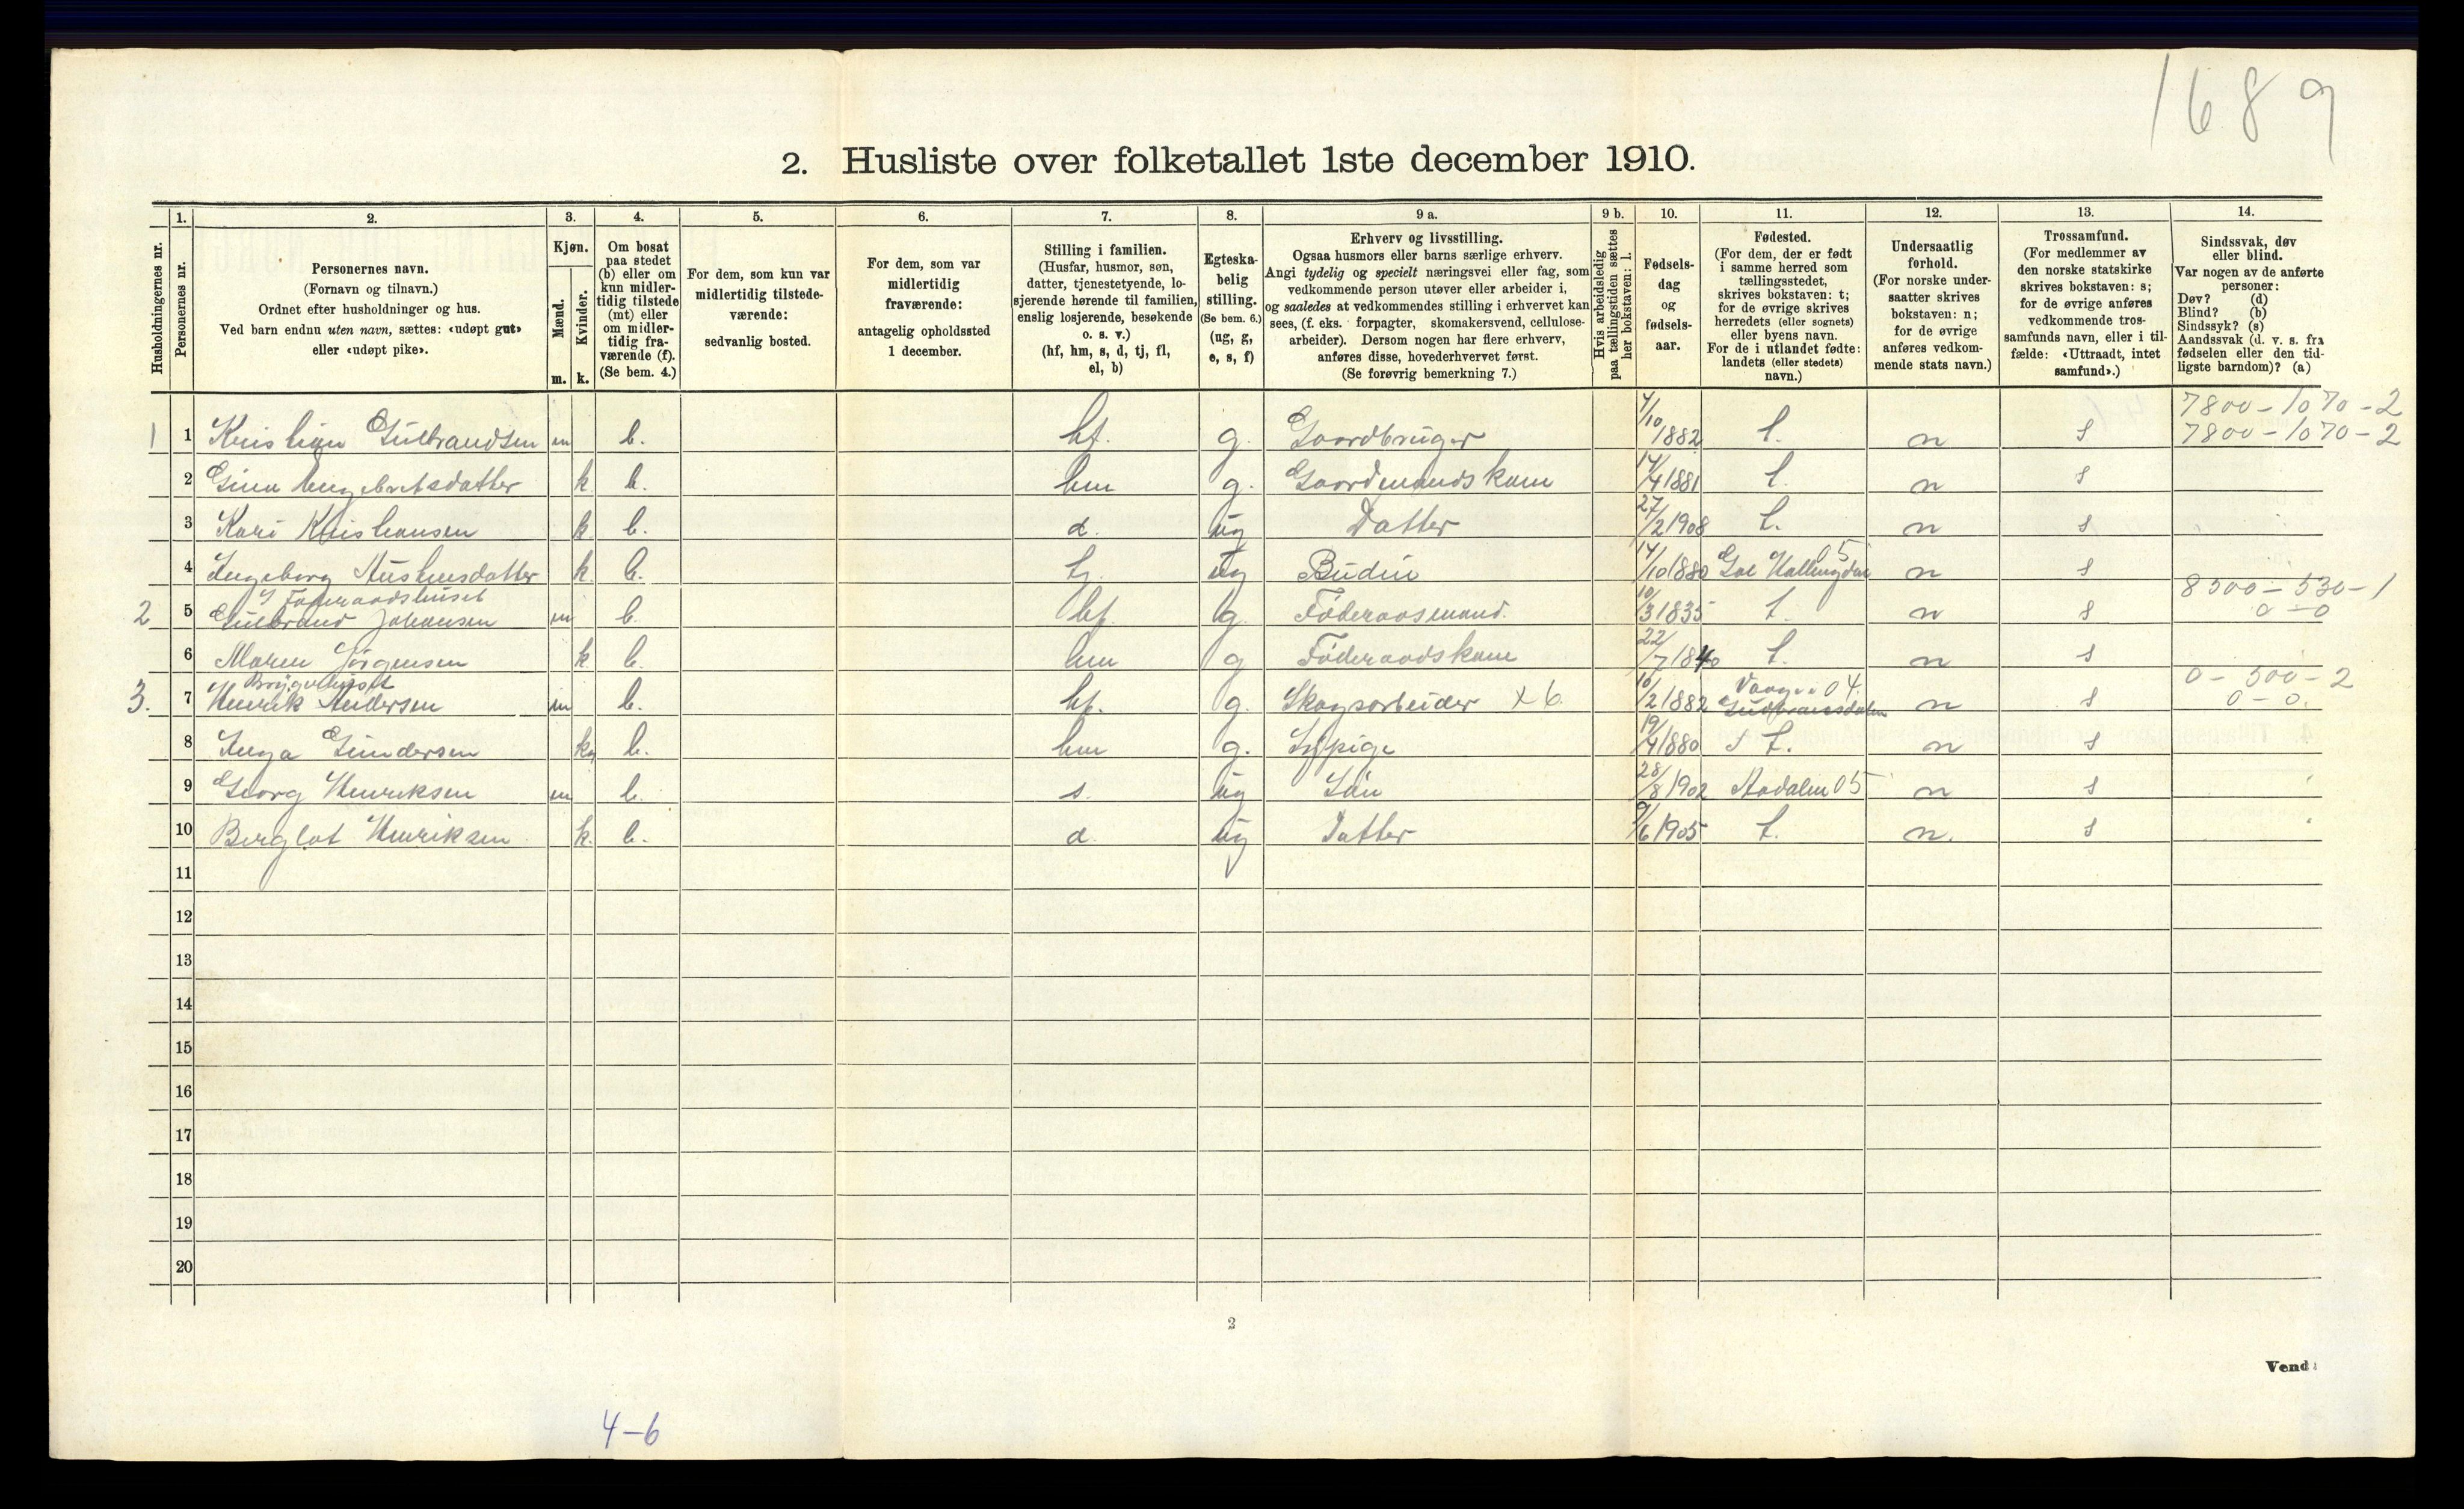 1689
2. Husliste over folketallet 1ste december 1910.
Husholdningernes nr.
1.
Personernes nr.
2.
Personernes navn.
(Fornavn og tilnavn.)
Ordnet efter husholdninger og hus.
Ved barn endnu uten navn, sættes: «udøpt gut»
eller «udøpt pike».
3.
Kjøn.
Mænd.
m.
Kvinder.
k.
4.
Om bosat
paa stedet
(b) eller om
kun midler-
tidig tilstede
(mt) eller
om midler-
tidig fra-
værende (f).
(Se bem. 4.)
5.
For dem, som kun var
midlertidig tilstede-
værende:
sedvanlig bosted.
6.
For dem, som var
midlertidig
fraværende:
antagelig opholdssted
1 december.
7.
Stilling i familien.
(Husfar, husmor, søn,
datter, tjenestetyende, lo-
sjerende hørende til familien,
enslig losjerende, besøkende
o. s. v.)
(hf, hm, s, d, tj, fl,
el, b)
8.
Egteska-
belig
stilling.
(Se bem. 6.)
(ug, g,
e, s, f)
9 a.
Erhverv og livsstilling.
Ogsaa husmors eller barns særlige erhverv.
Angi tydelig og specielt næringsvei eller fag, som
vedkommende person utøver eller arbeider i,
og saaledes at vedkommendes stilling i erhvervet kan
sees, (f. eks. forpagter, skomakersvend, cellulose-
arbeider). Dersom nogen har flere erhverv,
anføres disse, hovederhvervet først.
(Se forøvrig bemerkning 7.)
9 b.
Hvis arbeidsledig
paa tællingstiden sættes
her bokstaven: l.
10.
Fødsels-
dag
og
fødsels-
aar.
11.
Fødested.
(For dem, der er født
i samme herred som
tællingsstedet,
skrives bokstaven: t;
for de øvrige skrives
herredets (eller sognets)
eller byens navn.
For de i utlandet fødte:
landets (eller stedets)
navn.)
12.
Undersaatlig
forhold.
(For norske under-
saatter skrives
bokstaven: n;
for de øvrige
anføres vedkom-
mende stats navn.)
13.
Trossamfund.
(For medlemmer av
den norske statskirke
skrives bokstaven: s;
for de øvrige anføres
vedkommende tros-
samfunds navn, eller i til-
fælde: «Uttraadt, intet
samfund».)
14.
Sindssvak, døv
eller blind.
Var nogen av de anførte
personer:
Døv? (d)
Blind? (b)
Sindssyk? (s)
Aandssvak (d. v. s. fra
fødselen eller den tid-
ligste barndom)? (a)
7800-1070-2
1 1 Kristian Gulbrandsen m b. hf. g. Gaardbruger 4/10 1882 t. n s 7800-1070-2
2 Gina Engebretsdatter k b. hm g. Gaardmandskone 14/4 1881 t. n s
3 Kari Kristiansen k b. d. ug Datter 27/2 1908 t. n s
4 Ingeborg k b. tj. ug Budeie 14/10 1880 Gol Hallingdal 05 n s
I Føderaadshuset 8500-530-1
2 5 Gulbrand Johansen m b. hf g. Føderaasmand. 10/3 1835 t. n s 0-0
6 Maren Jørgensen k b. hm g Føderaadskone 22/7 1840 t. n s
Bryggehuset Vaage 04. 0-500-2
3. 7 Henrik Andersen m b. hf. g. Skogsarbeider x6 10/2 1882 Gudbransdalen n s 0-0.
8 Inga Gundersen k b. hm g. 19/4 1880 t. n s
9 Georg Henriksen m b. s. ug Søn 28/8 1902 Aadalen 05 n s
10 Berglot Henriksen k. b. d. ug Datter 9/6 1905 t. n. s
11
12
13
14
15
16
17
18
19
20
2
Vend
4-6